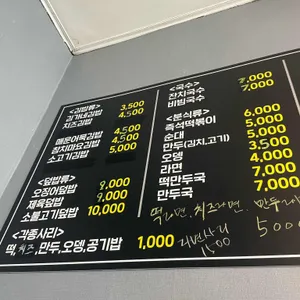 <김밥류>
김가네김밥 3,500
치즈김밥 4,500
매운어묵김밥 4,500
참치마요김밥 4,500
소고기김밥 5,000
<덮밥류>
오징어덮밥 9,000
제육덮밥 9,000
소불고기덮밥 10,000
<각종사리>
떡, 치즈, 만두, 오뎅, 공기밥 1,000
1500
<국수>
잔치국수 7,000
비빔국수 7,000
<분식류>
즉석떡볶이 6,000
순대 5,000
만두(김치,고기) 5,000
오뎅 3,500
라면 5,000
떡만두국 7,000
만두국 7,000
5000